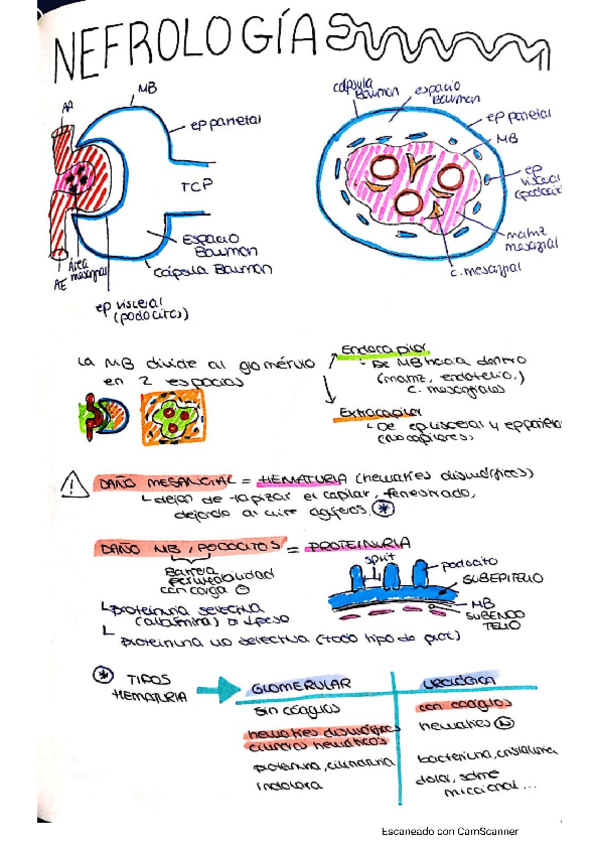 NEFROLOGÍA
AA
MB
ep parietal
TCP
Espacio
Bauman
Cápsula Bauman
Área
mesangial
AE
ep visceral
(podocitos)
cápsula
Bauman
espacio
Bauman
ep parietal
MB
ep
visceral
(podocit
matriz
mesangial
c. mesangial
La MB divide al glomérulo
en 2 espacios
Endocapilar
De MB hacia dentro
(matriz, endotelio,)
c. mesangiales
Extracapilar
De ep visceral y ep parieta
(no capilares)
DAÑO MESANGIAL = HEMATURIA (hematíes dismórficos)
dejan de tapizar el capilar, fenestrado,
dejando al aire agujeros. *
DAÑO MB, PODOCITOS = PROTEINURIA
Barrera
permeabilidad
con carga ⊖
proteinuria selectiva
(albúmina) ↓peso
proteinuria no selectiva (todo tipo de prot)
split
podocito
SUBEPITELIO
MB
SUBENDO
TELIO
* TIPOS
HEMATURIA
GLOMERULAR
UROLÓGICA
sin coágulos
con coágulos
hematíes dismórficos
cilindros hemáticos
hematíes N
proteinuria, cilindruria
bacteriuria, cristaluria
Indolora
dolor, sdme
miccional...
Escaneado con CamScanner